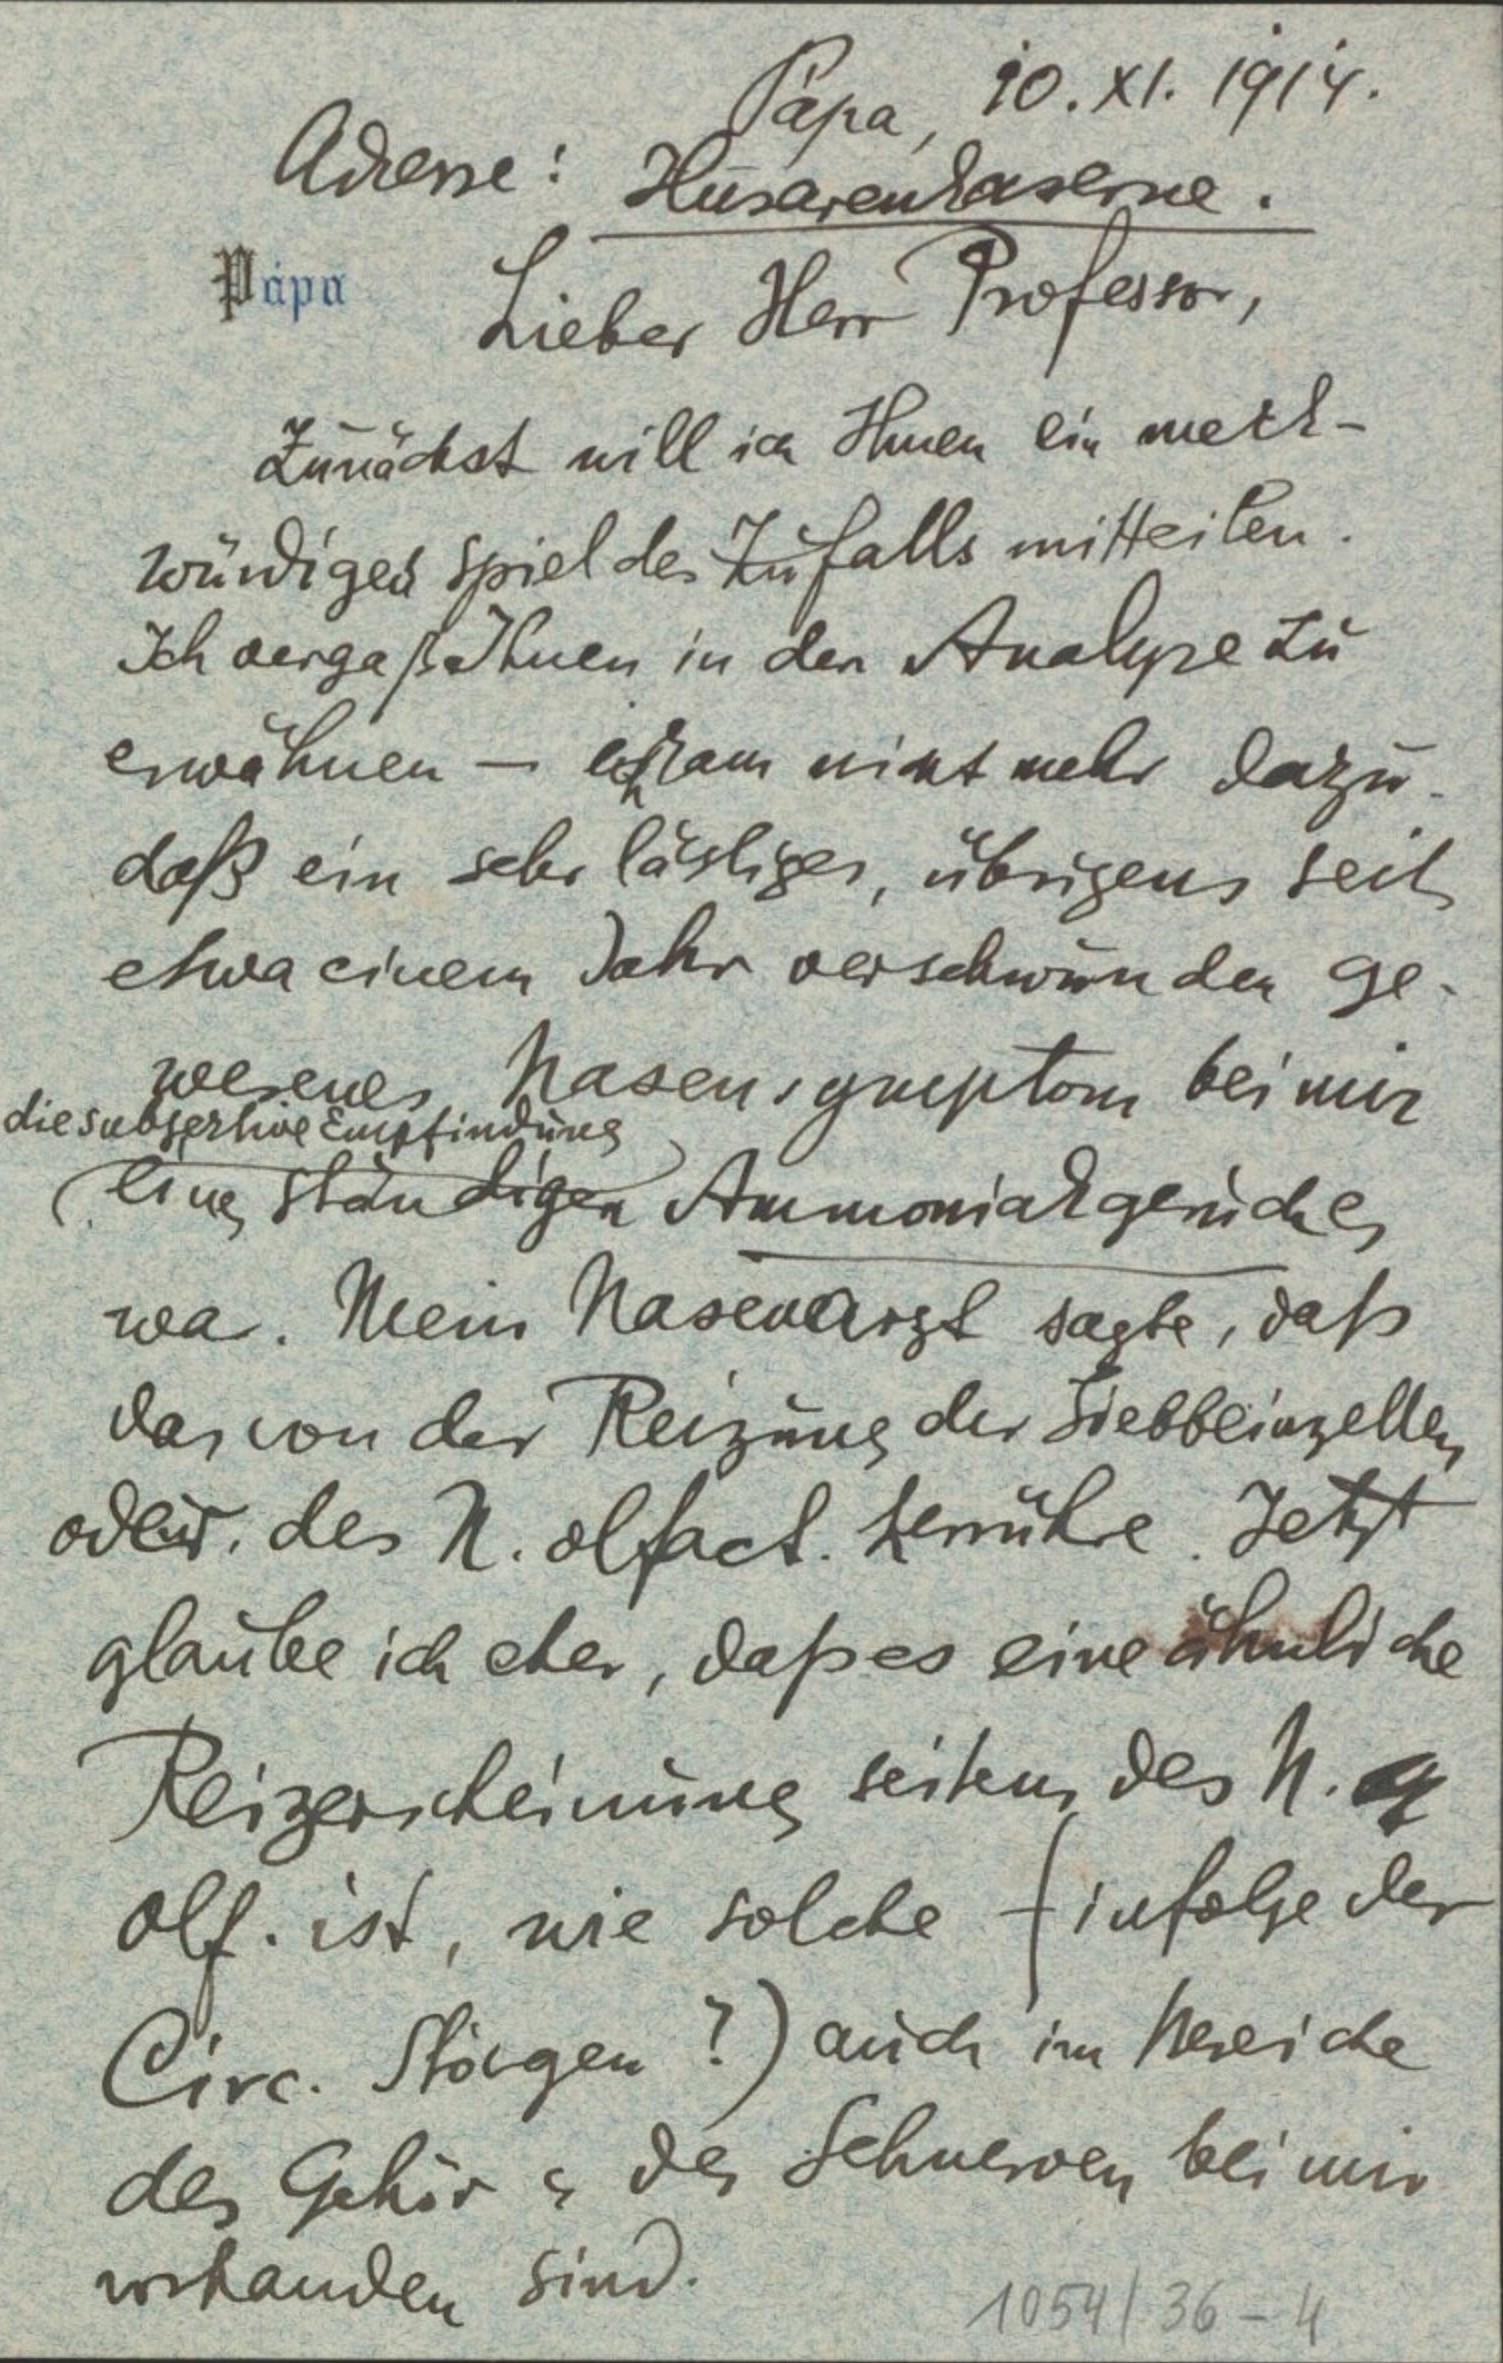 Pápa, 10. XI. 1914.
Adresse: Husarenkaserne.
Pápa
Lieber Herr Professor,
Zunächst will ich Ihnen ein merk-
würdiges Spiel des Zufalls mitteilen.
Ich vergaß Ihnen in der Analyse zu
erwähnen – ich kam nicht mehr dazu –
daß ein sehr lästiges, übrigens seit
etwa einem Jahr verschwunden ge-
wesenes Nasensymptom bei mir
die subjektive Empfindung
eines ständigen Ammoniakgeruches
war. Mein Nasenarzt sagte, daß
das von der Reizung der Siebbeinzellen
oder des N. olfact. herrühre. Jetzt
glaube ich eher, daß es eine ähnliche
Reizerscheinung seitens des N.
olf. ist, wie solche – (infolge der
Circ. Störgen?) auch im Bereiche
des Gehör & des Sehnerven bei mir
vorhanden sind.
1054/36-4